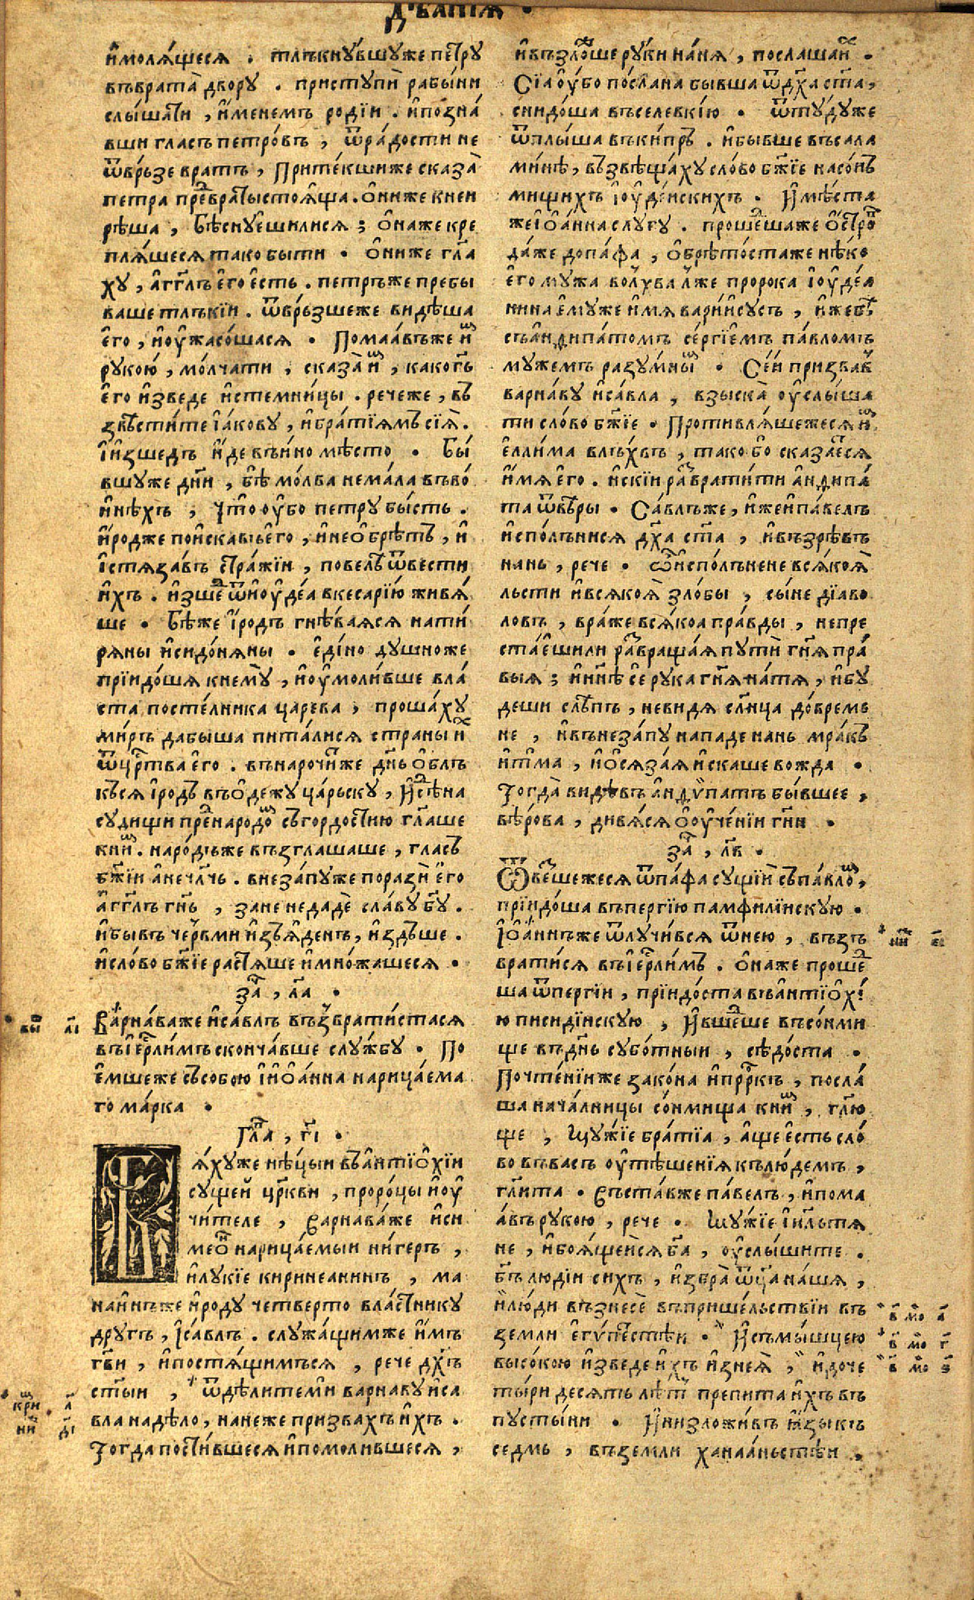 дѣанїѧ
и҆молѧ́щесѧ . тлъкнꙋ́вшꙋже петрꙋ
въврата̀ дворꙋ . пристꙋпѝ рабы́ни
слы́шати , и҆менемъ ро́дїи . и҆позна́
вши гласъ петро́въ , ѿра́дости не
ѿврь́зе вратъ , Прите́кшиже сказа̀
петра пре́дⷣвраты стоѧ́ща . ѻ҆ниже кнеи
рѣ́ша , бѣснꙋ́ешилисѧ ; ѻ҆наже крѣ
плѧ́шесѧ тако быти . ѻ҆ниже гл҃а
хꙋ , а҆гг҃лъ є҆го є҆сть . петръже пребы
ваше тлъкі́и . ѿврь́зшеже видѣша
є҆го , и҆ѹ҆жасо́шасѧ . Помаа́въже и҆мⷨ
рꙋкою̀ , мо́лчати , сказа̀ и҆мⷨ , какогь҃
є҆го и҆зведе и҆стемни́цы . рече́же , въ
звѣсти́те і҆а́ковꙋ , и҆бра́тїѧмъ сїѧ̀ .
І҆и҆зшедъ и҆́де въи́но мѣ́сто . Бы́
вшꙋже дн҃и , бѣ̀ мо́лва нема́ла въво́
и҆нѣхъ , что̀ ѹ҆бо петрꙋ бысть .
и҆́родже пои҆скавъ є҆го , и҆неѻ҆брѣ́тъ , и҆
і҆стѧза́въ стра́жїи , повелѣ̀ ѿвести
и҆хъ . и҆зшеⷣ ѿи҆ѹде́а вкесарі́ю живѧ́
ше . Бѣ́же і҆́родъ гнѣ́ваѧсѧ натѝ
рѧны и҆сидо́нѧны . є҆ді́но дꙋшноже
прїидо́шѧ кнемꙋ̀ , и҆ѹ҆моли́вше вла́
ста посте́лника царева , проша́хꙋ
ми́ръ да бы́ша пита́лисѧ страны и҆хⷯ
ѿцр҃тва є҆го . въ наро́читиже дн҃ь ѻ҆блъ
къ́сѧ і҆родъ въ ѻ҆де́жꙋ ца́рьскꙋ , и҆сѣ́дⷣ на
сꙋди́щи преⷣ наро́домⷨ съгордостїю гл҃аше
книмⷨ . наро́дъже възглаша́ше , гласъ
бж҃їи а҆нечл҃чь . внеза́пꙋже поразѝ є҆го
а҆гг҃лъ гн҃ь , за́не недадѐ сла́вꙋ бг҃ꙋ .
и҆бывъ че́рвми и҆зъѧ́денъ , и҆здъ́ше .
и҆сло́во бж҃їе растѧ́ше и҆мно́жашесѧ .
заⷱ҇ , л҃а .
Варна́важе и҆са́влъ възврати́стасѧ
въі҆ерⷭ҇лимъ сконча́вше слꙋ́жбꙋ . По
є҆мшеже съсобою и҆ і҆ѻ҆а́нна нарица́ема
го ма́рка .
Глⷡ҇а , г҃і .
Бѧ́хꙋже нѣ́цыи въа҆нтїѻ҆хі́и
сꙋ́щей цр҃кви , проро́цы и҆ѹ҆
чи́теле , Варнава́же и҆си
меѻ҆нⷩ нарица́емыи ни́геръ ,
и҆лꙋкі́е кирине́анинъ , ма
наи́нъже и҆́родꙋ четверто вла́стникꙋ
дрꙋгъ , і҆са́влъ . слꙋжа́щимже и҆мъ
гв҃и , и҆постѧ́щимъсѧ , рече дх҃ъ
ст҃ыи , ѿдѣли́те ми варна́вꙋ и҆са
вла надѣ́ло , на не́же призва́хъ и҆хъ .
Тогда пости́вшесѧ и҆помоли́вшесѧ ,
вы́ш а҃і
ни дⷶ҇і
и҆възло́жше рꙋки наⷩ҇ѧ , посла́ша и҆хⷯ .
Сїа̀ ѹ҆бо по́слана бывша ѿдх҃а ст҃а ,
снидо́ша въселевкі́ю . ѿтꙋ́дꙋже
ѿплы́ша въкипръ . и҆бывше въсала
ми́нѣ , възвѣща́хꙋ сло́во бж҃їе насо́нъ
мищихъ і҆ѹде́искихъ . И҆мѣ́ста
же і҆ѻ҆а́нна слꙋгꙋ̀ . проше́дшаже ѻ҆стровⷡ
да́же допа́фа , ѻ҆брѣто́стаже нѣ́ко
є҆го мꙋжа волхва лже проро́ка і҆ѹде́а
нина є҆мꙋже и҆мѧ вариі҆исꙋсъ , и҆́же бѣ̀
съ а҆ндипа́томъ се́ргїемъ па́вломъ
мꙋ́жемъ разꙋ́мнымⷨ . Се́и призвав
варна́вꙋ и҆са́вла , взыска̀ ѹ҆слы́ша
ти сло́во бж҃їе . Противлѧ́шежесѧ и҆мⷨ
є҆ли́ма влъхвъ , тако́ бо сказа́етсѧ
и҆мѧ є҆го . и҆скі́и разврати́ти а҆ндипа́
та ѿвѣры . Са́влъже , и҆́же и҆ па́велъ
и҆спо́лънисѧ дх҃а ст҃а , и҆възрѣ́въ
на́нь , рече . ѽ и҆спо́лънене всѧ́коѧ̀
льсти и҆всѧ́коѧ̀ зло́бы , сы́не дїа́во
ловъ , вра́же всѧ́коа пра́вды , непре
ста́еши ли развраща́ѧ пꙋти̂ гн҃ѧ пра́
выѧ ; и҆нн҃ѣ се рꙋка гн҃ѧ на́тѧ , и҆бꙋ́
деши слѣпъ , неви́дѧ сл҃нца до́време
не , и҆внеза́пꙋ нападе на́нь мра́къ
и҆тма , и҆ѻ҆сѧза́ѧ и҆скаше вожда .
Тогда̀ ви́дѣвъ а҆ндѵпатъ бы́вшее ,
вѣ́рова , дивѧ́сѧ ѻ҆ѹ҆че́нїи гн҃и .
заⷱ҇ , л҃в .
Ѿве́зшежесѧ ѿпа́фа сꙋщи́и съпа́вломⷨ ,
прїидо́ша въпергі́ю памфили́искꙋю .
І҆ѻ҆а́ннъже ѿлꙋчи́всѧ ѿнею , възъ
врати́сѧ въі҆ерⷭ҇лимъ . ѻ҆наже проше́дⷣ
ша ѿпергі́и , прїидо́ста въа҆нтїѻ҆хі́
ю писиді́искꙋю , И҆вше́дⷣше въсо́нми
ще въдн҃ь сꙋбо́тныи , сѣдо́ста .
Почте́нїиже зако́на и҆прⷪ҇ркъ , посла́
ша нача́лницы со́нмища книмⷨ , гл҃ю
ще , Мꙋ́жїе бра́тїа , а҆́ще є҆сть сло́
во въва́съ ѹ҆тѣше́нїѧ клю́демъ ,
гл҃ита . Въста́вже па́велъ , и҆пома
а́въ рꙋкою , рече . Мꙋ́жїе і҆и҃льтѧ
не , и҆боѧ́щеисѧ бг҃а , ѹ҆слы́шите .
бг҃ъ людїи сихъ , и҆збра̀ ѿц҃а на́шѧ ,
и҆лю́ди възнесѐ въпришельствїи въ
земли є҆гѵ́петстѣи . И҆съмы́шцею
высокою и҆зведе и҆хъ и҆знеѧ̀ , и҆до че
ты́ри десѧть лѣ́тъ препита и҆хъ въ
пꙋсты́ни . И҆низложи́въ ѧ҆зы́къ
седмь , въземли хана́аньстѣи ,